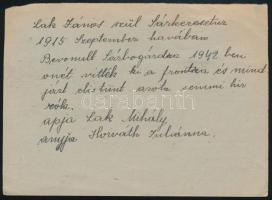 Lak János szül Sárkeresztur
1915 Szeptember havában
Bevonult Sárbogárdra 1942 ben
onét vitték ki a frontra és mind
járt eltünt azota semmi hir
róla.
apja Lak Mihály
anyja Horváth Juliánna.
darabanth